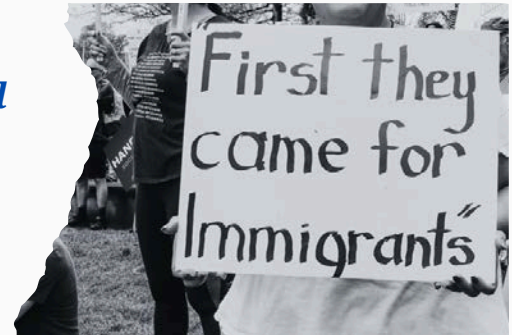 First they
came for
Immigrants"
HAND